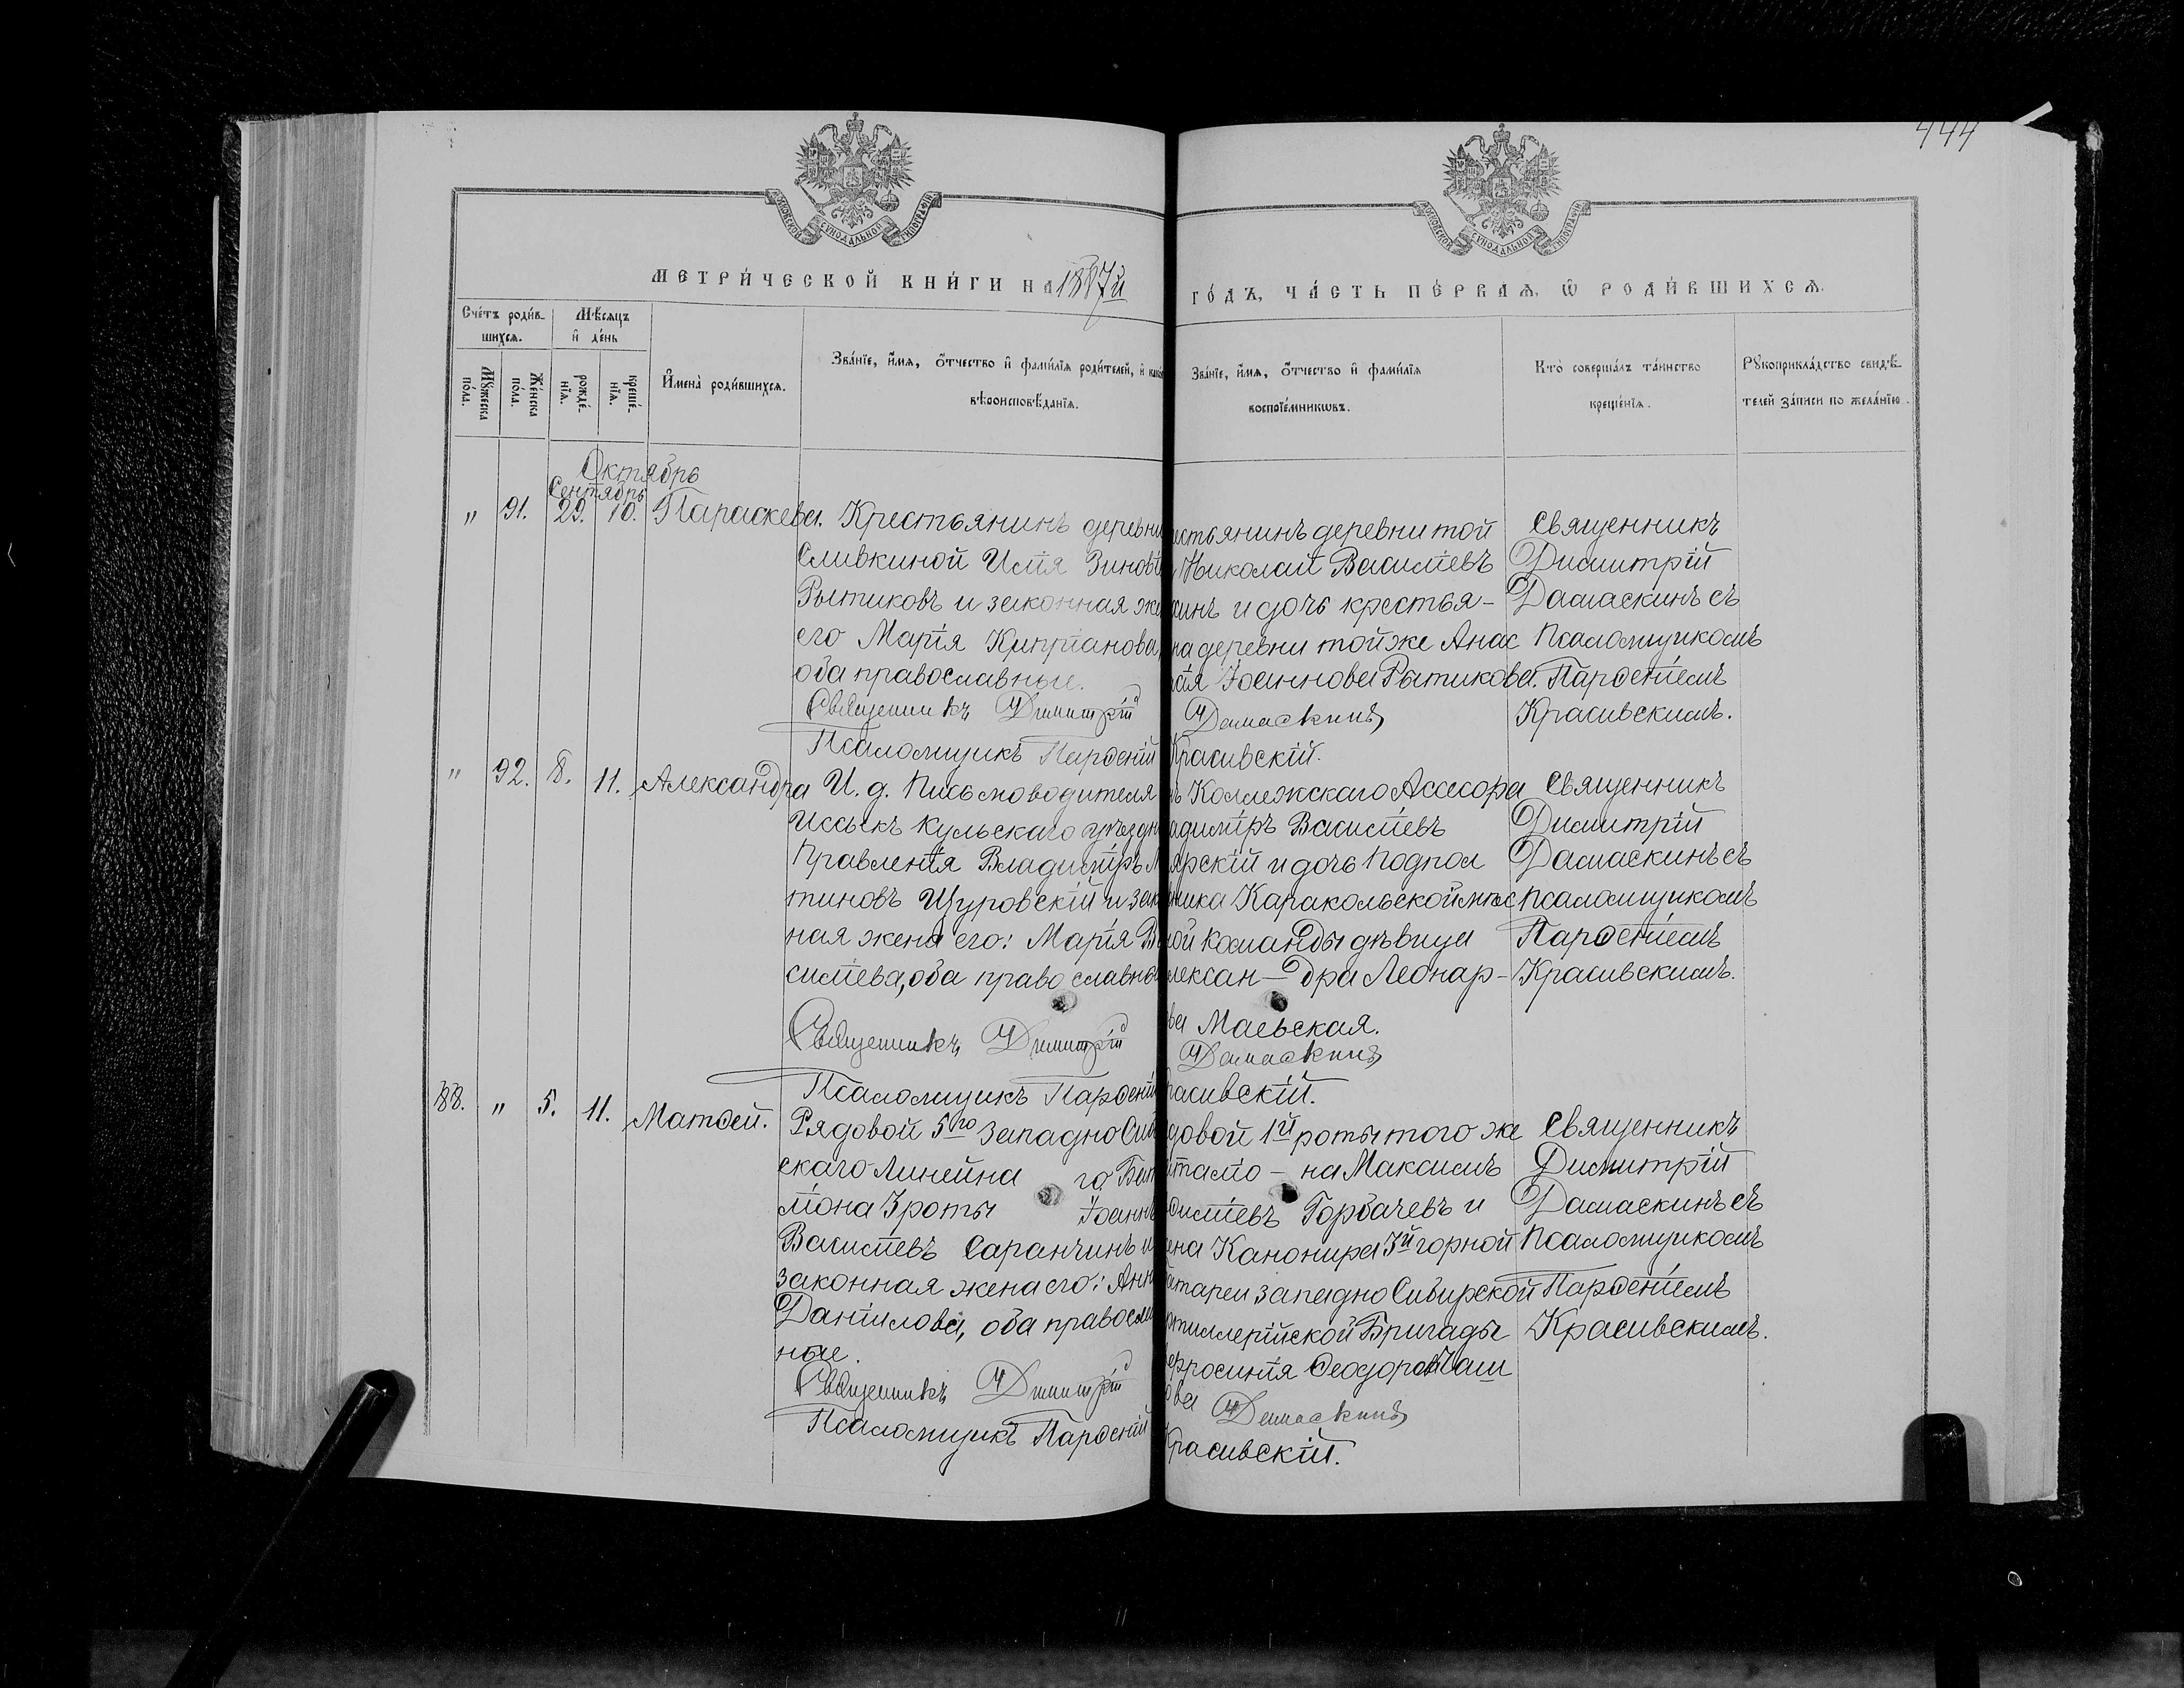 444
МОСКОВСКОЙ СѴНОДАЛЬНОЙ ТИПОГРАФІИ
МОСКОВСКОЙ СѴНОДАЛЬНОЙ ТИПОГРАФІИ
МЕТРИ́ЧЕСКОЙ КНИ́ГИ НА 1887й
ГО́ДЪ, ЧА́СТЬ ПЕ́РВАѦ, Ѡ РОДИ́ВШИХСѦ.
Сче́тъ роди́в-
шихсѧ.
Мꙋжеска по́ла.
Же́нска по́ла.
Мѣ́сѧцъ
и҆ де́нь
рожде́-
нїѧ.
креще́-
нїѧ.
И҆мена̀ роди́вшихсѧ.
Зва́нїе, и҆́мѧ, о҆́тчество и҆ фами́лїѧ роди́телей, и҆
вѣроисповѣ́данїѧ.
Зва́нїе, и҆́мѧ, о҆́тчество и҆ фами́лїѧ
воспрїе́мникѡвъ.
Кто̀ соверша́лъ та́инство
креще́нїѧ.
Рꙋкоприкла́дство свидѣ́-
телей за́писи по жела́нїю.
Октябрь
Сентябрь
" 91. 29. 10. Параскева.
Крестьянинъ деревни
Сливкиной Илія
Рытиковъ и законная
его Марія Кипріанова,
оба православные.
Священникъ Димитрій
Псаломщикъ Парѳеній
деревни той
Николай Василіевъ
и дочь крестья-
деревни тойже Анас
Іоаннова Рытикова.
Дамаскинъ
Красивскій.
Священникъ
Димитрій
Дамаскинъ съ
Псаломщикомъ
Парѳеніемъ
Красивскимъ.
" 92. 8. 11. Александра
И. д. Письмоводителя
Иссыкъ Кульскаго
Правленія Владиміръ
тиновъ Щуровскій и
ная жена его: Марія
силіева, оба православн
Священникъ Димитрій
Псаломщикъ Парѳеній
Коллежскаго Ассесора
Василіевъ
и дочь Подпол
Каракольской мѣс
команды дѣвица
лексан-дра Леонар-
Маевская.
Дамаскинъ
Красивскій.
Священникъ
Димитрій
Дамаскинъ съ
Псаломщикомъ
Парѳеніемъ
Красивскимъ.
88. " 5. 11. Матѳей.
Рядовой 5го Западно Сиб
скаго Линейна го Бат
ліона 3 роты Іоаннъ
Василіевъ Саранчинъ и
законная жена его: Анн
Даніилова, оба правосла
ные.
Священникъ Димитрій
Псаломщикъ Парѳеній
довой 1й роты того же
таліо-на Максимъ
Горбачевъ и
Канонира 3й горной
Западно Сибирской
Артиллерійской Бригады
Ѳеодоров
Дамаскинъ
Красивскій.
Священникъ
Димитрій
Дамаскинъ съ
Псаломщикомъ
Парѳеніемъ
Красивскимъ.